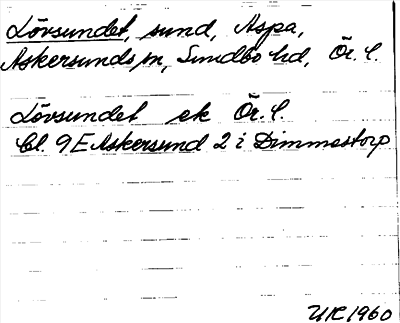 Lövsundet, sund, Aspa,
Askersunds sn, Sundbo hd, Ör. l.
Lövsundet ek Ör. l.
Bl. 9E Askersund 2 i Dimmestorp
UR 1960